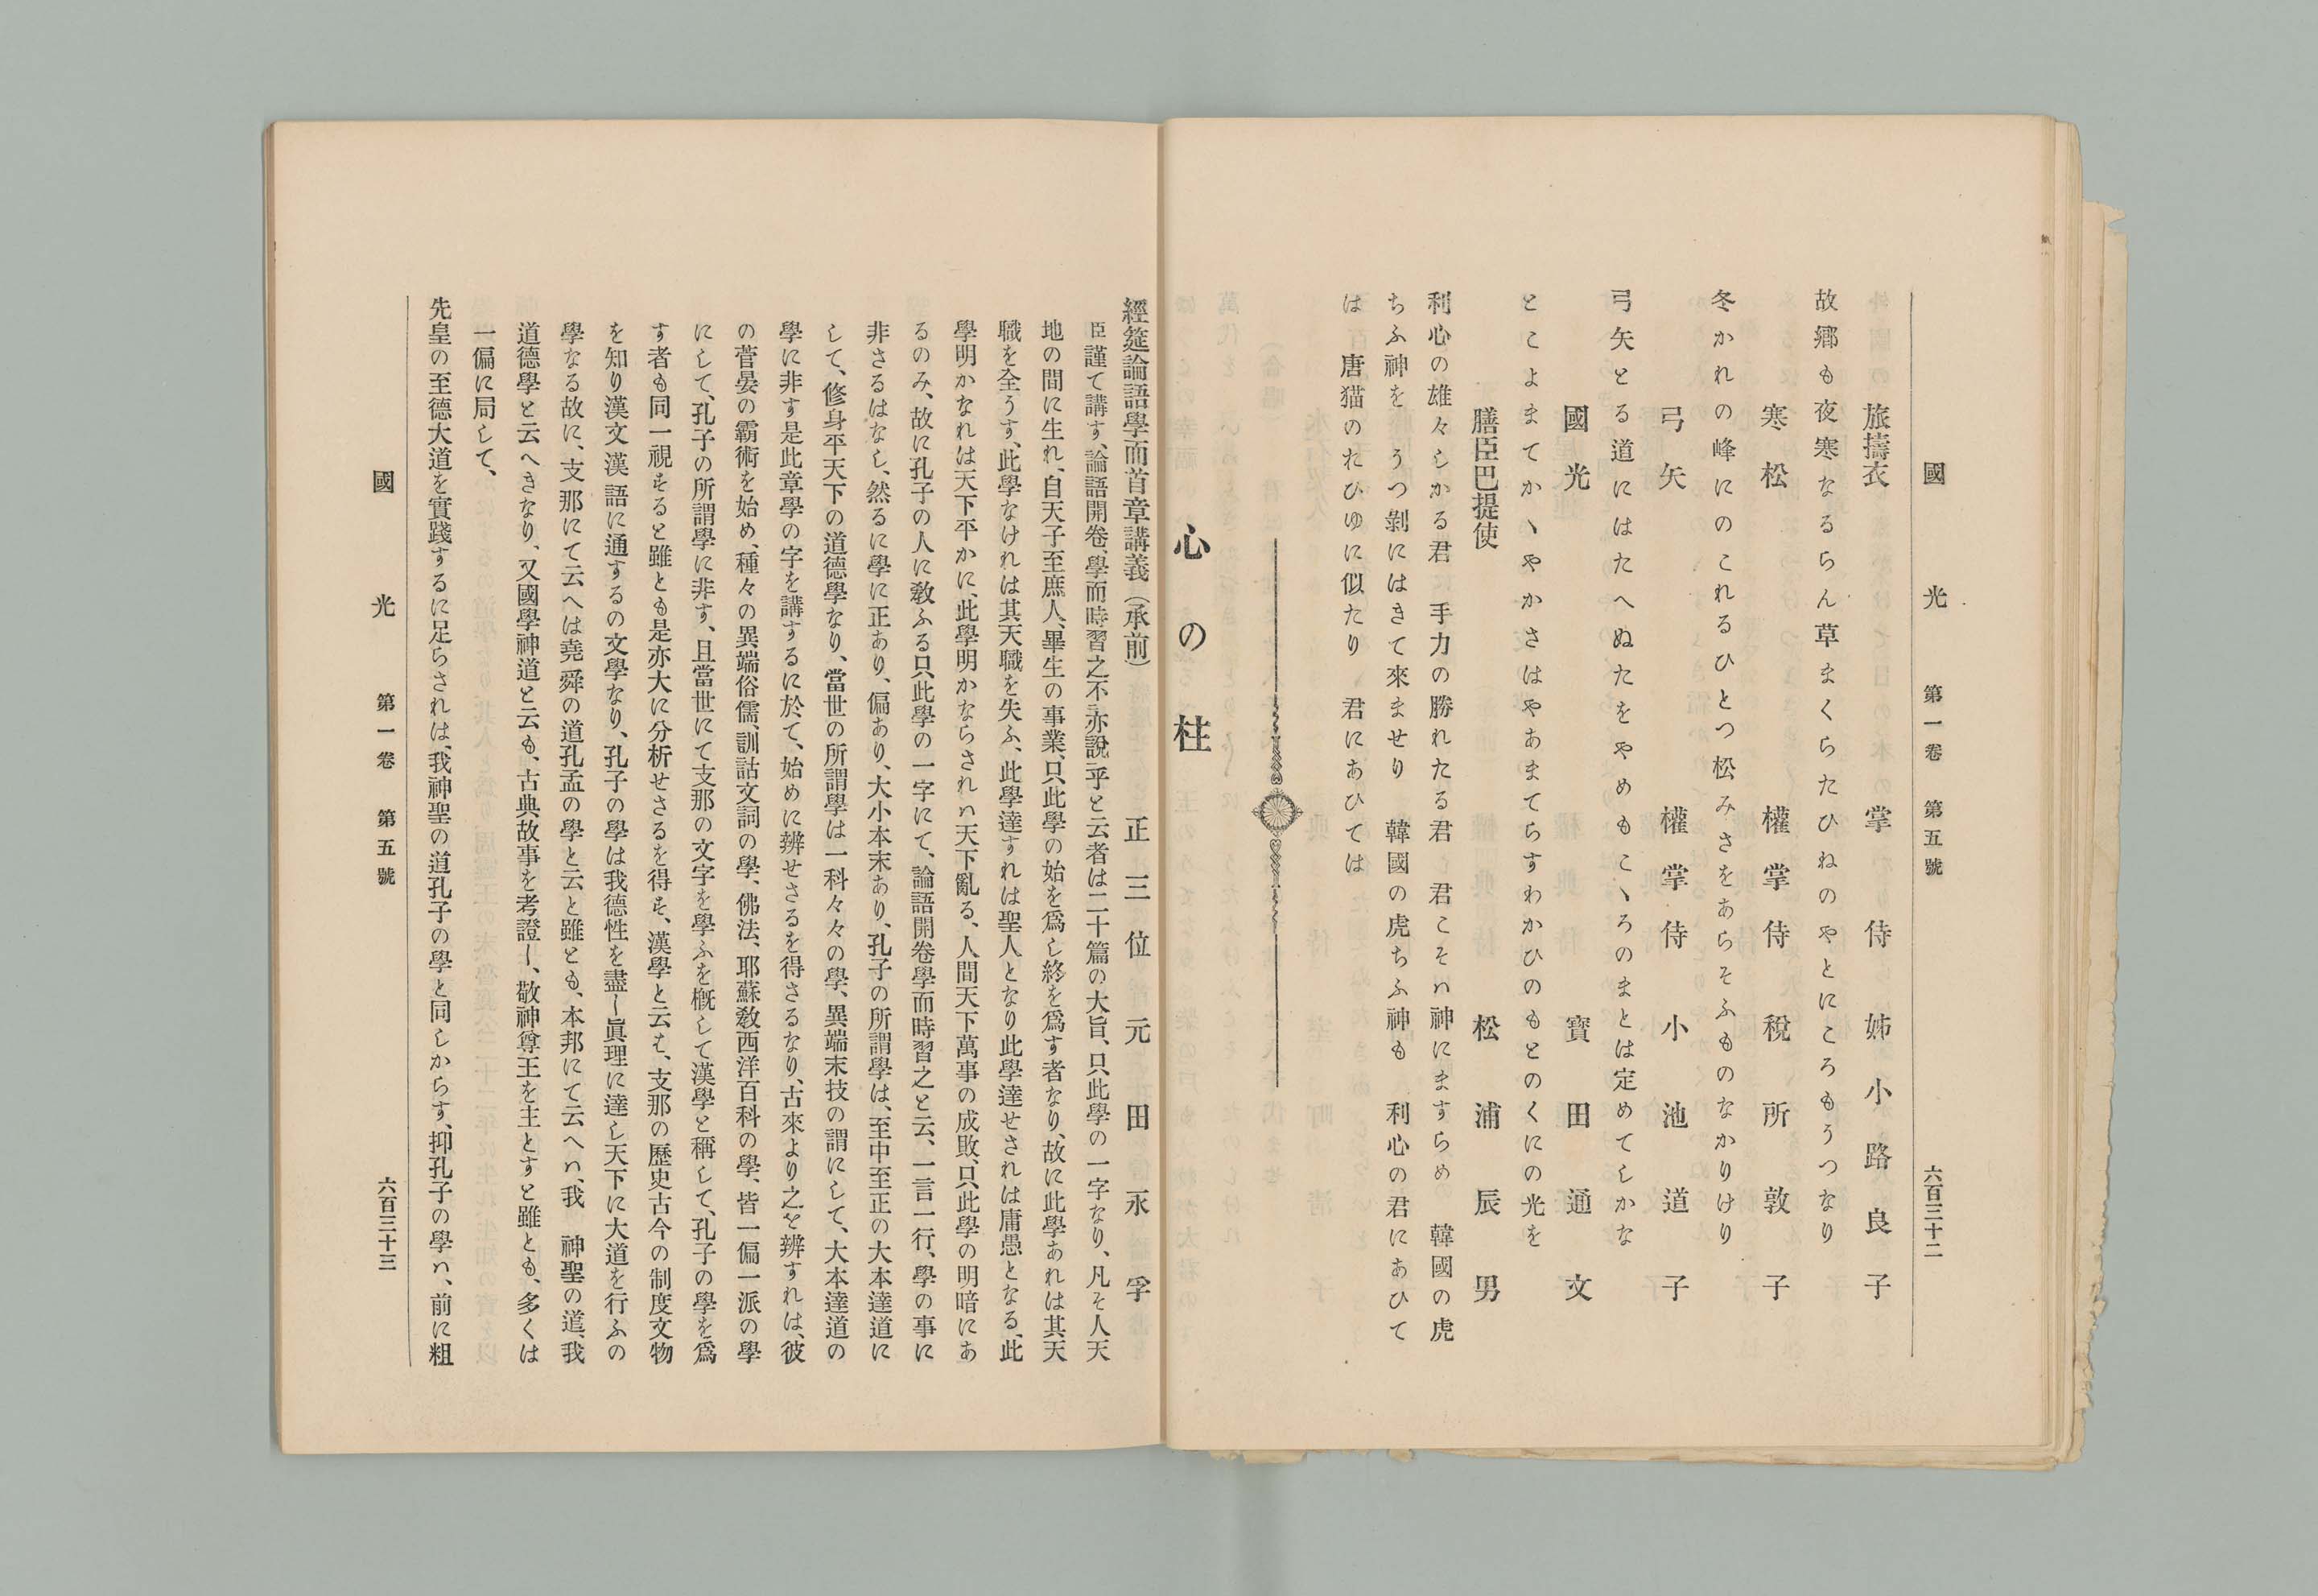 國光 第一卷 第五號 六百三十二
旅擣衣 掌侍 姉小路良子
故鄕も夜寒なるらん草まくらたひねのやとにころもうつなり
寒松 權掌侍 税所敦子
冬かれの峰にのこれるひとつ松みさをあらそふものなかりけり
弓矢 權掌侍 小池道子
弓矢とる道にはたへぬたをやめもこヽろのまとは定めてしかな
國光 寶田通文
とこよまてかヽやかさはやあまてらすわかひのもとのくにの光を
膳臣巴提使 松浦辰男
利心の雄々しかる君 手力の勝れたる君 君こそハ神にますらめ 韓國の虎
ちふ神を うつ剝にはきて來ませり 韓國の虎ちふ神も 利心の君にあひて
は 唐猫のたひゆに似たり 君にあひては
心の柱
經筵論語學而首章講義(承前) 正三位 元田永孚
臣謹て講す、論語開卷、學而時習之不亦說乎と云者は二十篇の大旨、只此學の一字なり、凡そ人天
地の間に生れ、自天子至庶人、畢生の事業、只此學の始を爲し終を爲す者なり、故に此學あれは其天
職を全うす、此學なけれは其天職を失ふ、此學達すれは聖人となり此學達せされは庸愚となる、此
學明かなれは天下平かに、此學明かならされハ天下亂る、人間天下萬事の成敗、只此學の明暗にあ
るのみ、故に孔子の人に敎ふる只此學の一字にて、論語開卷學而時習之と云、一言一行、學の事に
非さるはなし、然るに學に正あり、偏あり、大小本末あり、孔子の所謂學は、至中至正の大本達道に
して、修身平天下の道德學なり、當世の所謂學は一科々々の學、異端末技の謂にして、大本達道の
學に非す是此章學の字を講するに於て、始めに辨せさるを得さるなり、古來より之を辨すれは、彼
の菅晏の霸術を始め、種々の異端俗儒、訓詁文詞の學、佛法、耶蘇敎西洋百科の學、皆一偏一派の學
にして、孔子の所謂學に非す、且當世にて支那の文字を學ふを槪して漢學と稱して、孔子の學を爲
す者も同一視そると雖とも是亦大に分析せさるを得そ、漢學と云も、支那の歷史古今の制度文物
を知り漢文漢語に通するの文學なり、孔子の學は我德性を盡し眞理に達し天下に大道を行ふの
學なる故に、支那にて云へは堯舜の道孔孟の學と云と雖とも、本邦にて云へハ、我 神聖の道、我
道德學と云へきなり、又國學神道と云も、古典故事を考證し、敬神尊王を主とすと雖とも、多くは
一偏に局して、
先皇の至德大道を實踐するに足らされは、我神聖の道孔子の學と同しからす、抑孔子の學ハ、前に粗
國光 第一卷 第五號 六百三十三